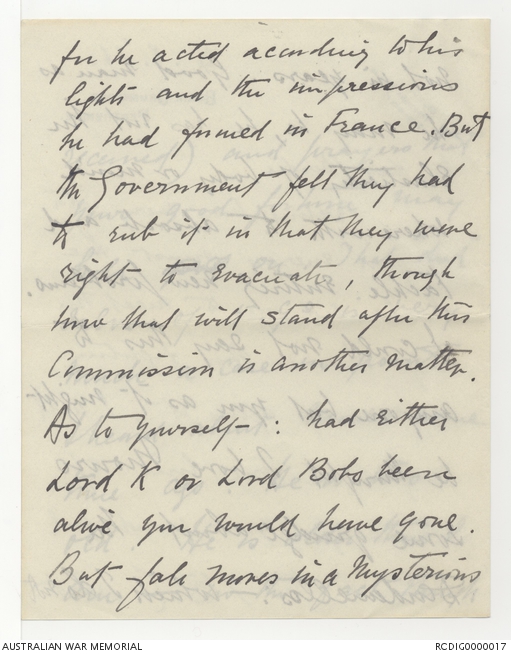 for he acted according to his
lights and the impressions
he had formed in France. But
the Government felt they had
to rub it in that they were
right to evacuate, though
how that will stand after this
Commission is another matter.
As to yourself -: had either
Lord K or Lord Bobs been
alive you would have gone.
But fate moves in a mysterious
AUSTRALIAN WAR MEMORIAL
RCDIG0000017